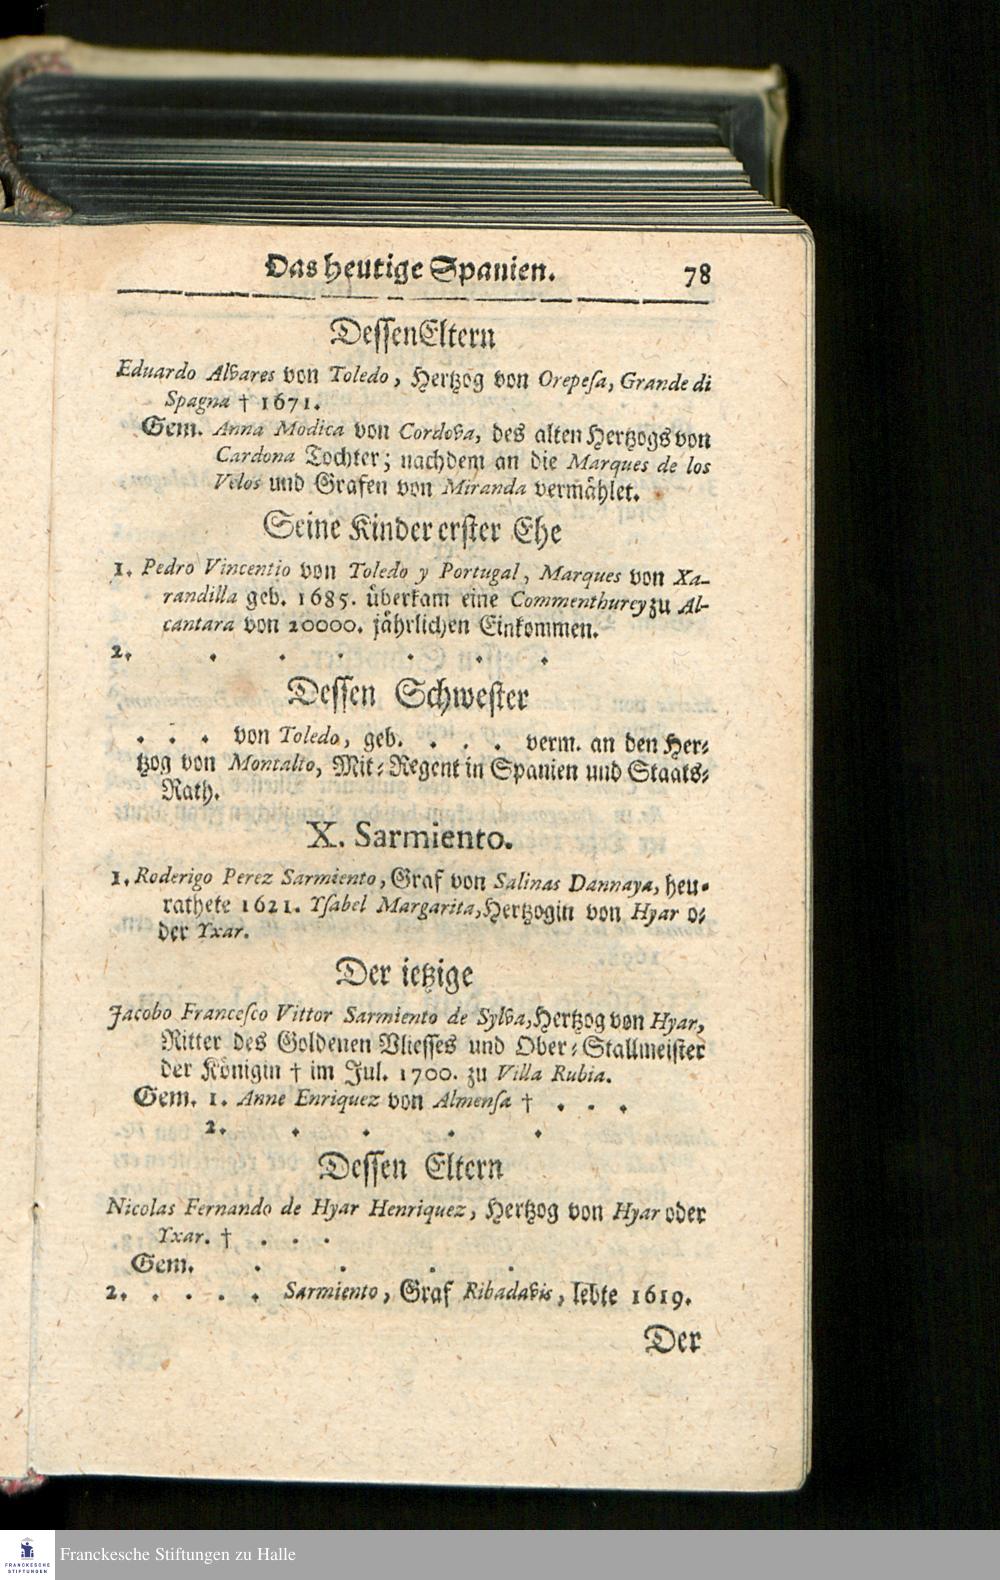 Das heutige Spanien. 78
Dessen Eltern
Eduardo Alvares von Toledo, Hertzog von Orepesa, Grande di
Spagna † 1671.
Gem. Anna Modica von Cordova, des alten Hertzogs von
Cardona Tochter; nachdem an die Marques de los
Velos und Grafen von Miranda vermählet.
Seine Kinder erster Ehe
1. Pedro Vincentio von Toledo y Portugal, Marques von Xa-
randilla geb. 1685. überkam eine Commenthurey zu Al-
cantara von 20000. jährlichen Einkommen.
2. . . . . . .
Dessen Schwester
. . . von Toledo, geb. . . . verm. an den Her-
tzog von Montalto, Mit-Regent in Spanien und Staats-
Rath.
X. Sarmiento.
1. Roderigo Perez Sarmiento, Graf von Salinas Dannaya, heu-
rathete 1621. Ysabel Margarita, Hertzogin von Hyar o-
der Yxar.
Der ietzige
Jacobo Francesco Vittor Sarmiento de Sylva, Hertzog von Hyar,
Ritter des Goldenen Vliesses und Ober-Stallmeister
der Königin † im Jul. 1700. zu Villa Rubia.
Gem. 1. Anne Enriquez von Almensa † . . .
2. . . . .
Dessen Eltern
Nicolas Fernando de Hyar Henriquez, Hertzog von Hyar oder
Yxar. † . . .
Gem. . . . .
2. . . . . Sarmiento, Graf Ribadavis, lebte 1619.
Der
FRANCKESCHE
STIFTUNGEN
Franckesche Stiftungen zu Halle